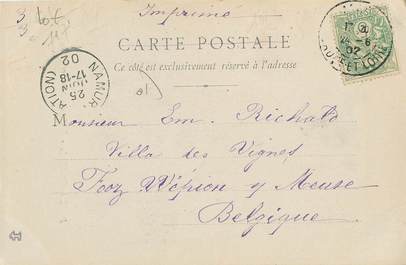 Imprimé
3 lot
3
CARTE POSTALE
Ce côté est exclusivement réservé à l'adresse
NAMUR (STATION)
25 JUIN
17-18
02
02
ET LOIRE
Monsieur Em. Richald
Villa des Vignes
Fooz Wépion s/ Meuse
Belgique